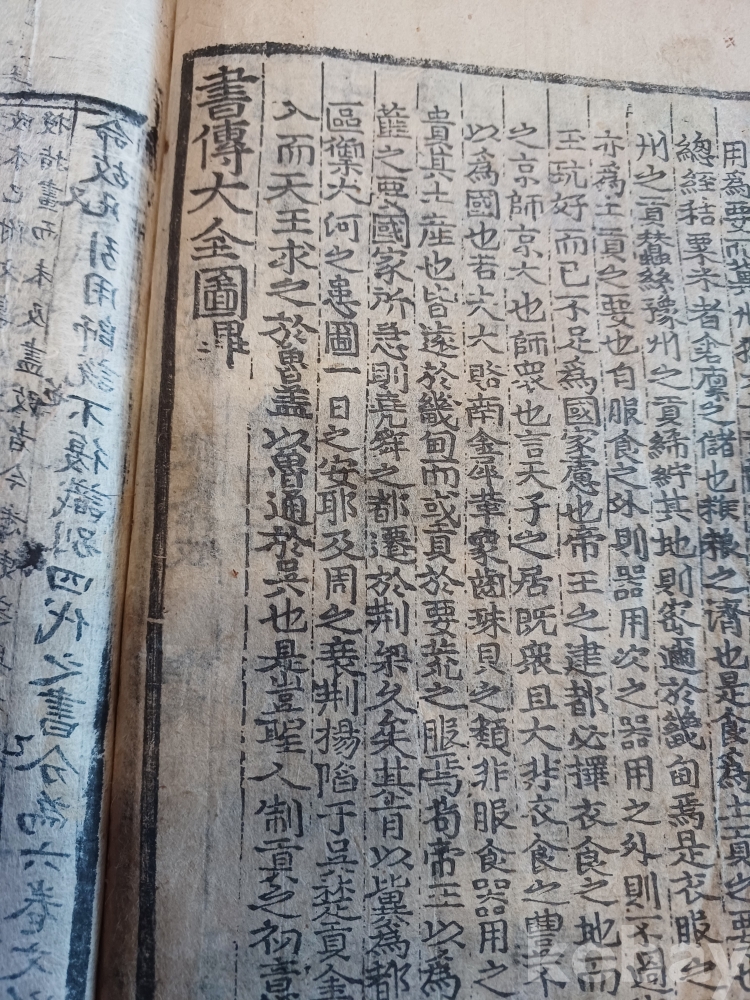 用為要而冀州
總銍秸粟米者倉廩之儲也 之濟也是食為土貢之要也
州之貢蠶絲豫州之貢絺紵其地則密邇於畿甸焉是衣服之
亦為土貢之要也自服食之外則器用次之器用之外則不過
王玩好而已不足為國家慮也帝王之建都必擇衣食之地而
之京師京大也師衆也言天子之居既衆且大非衣食之豊不
以為國也若夫大賂南金犀革象齒珠貝之類非服食器用之
貴其土産也皆遠於畿甸而或貢於要荒之服焉苟帝王以為
之要國家所急則堯舜之都遷於荆梁久矣其肯以冀為都
區禦大河之患圖一日之安耶及周之衰荆揚陷于吴楚貢金
入而天王求之於魯蓋以魯通於吴也是豈聖人制貢之初意
書傳大全圖畢
命故凡引用師說不復識別四代之書分為六卷文以
指畫而未及盡改者今悉